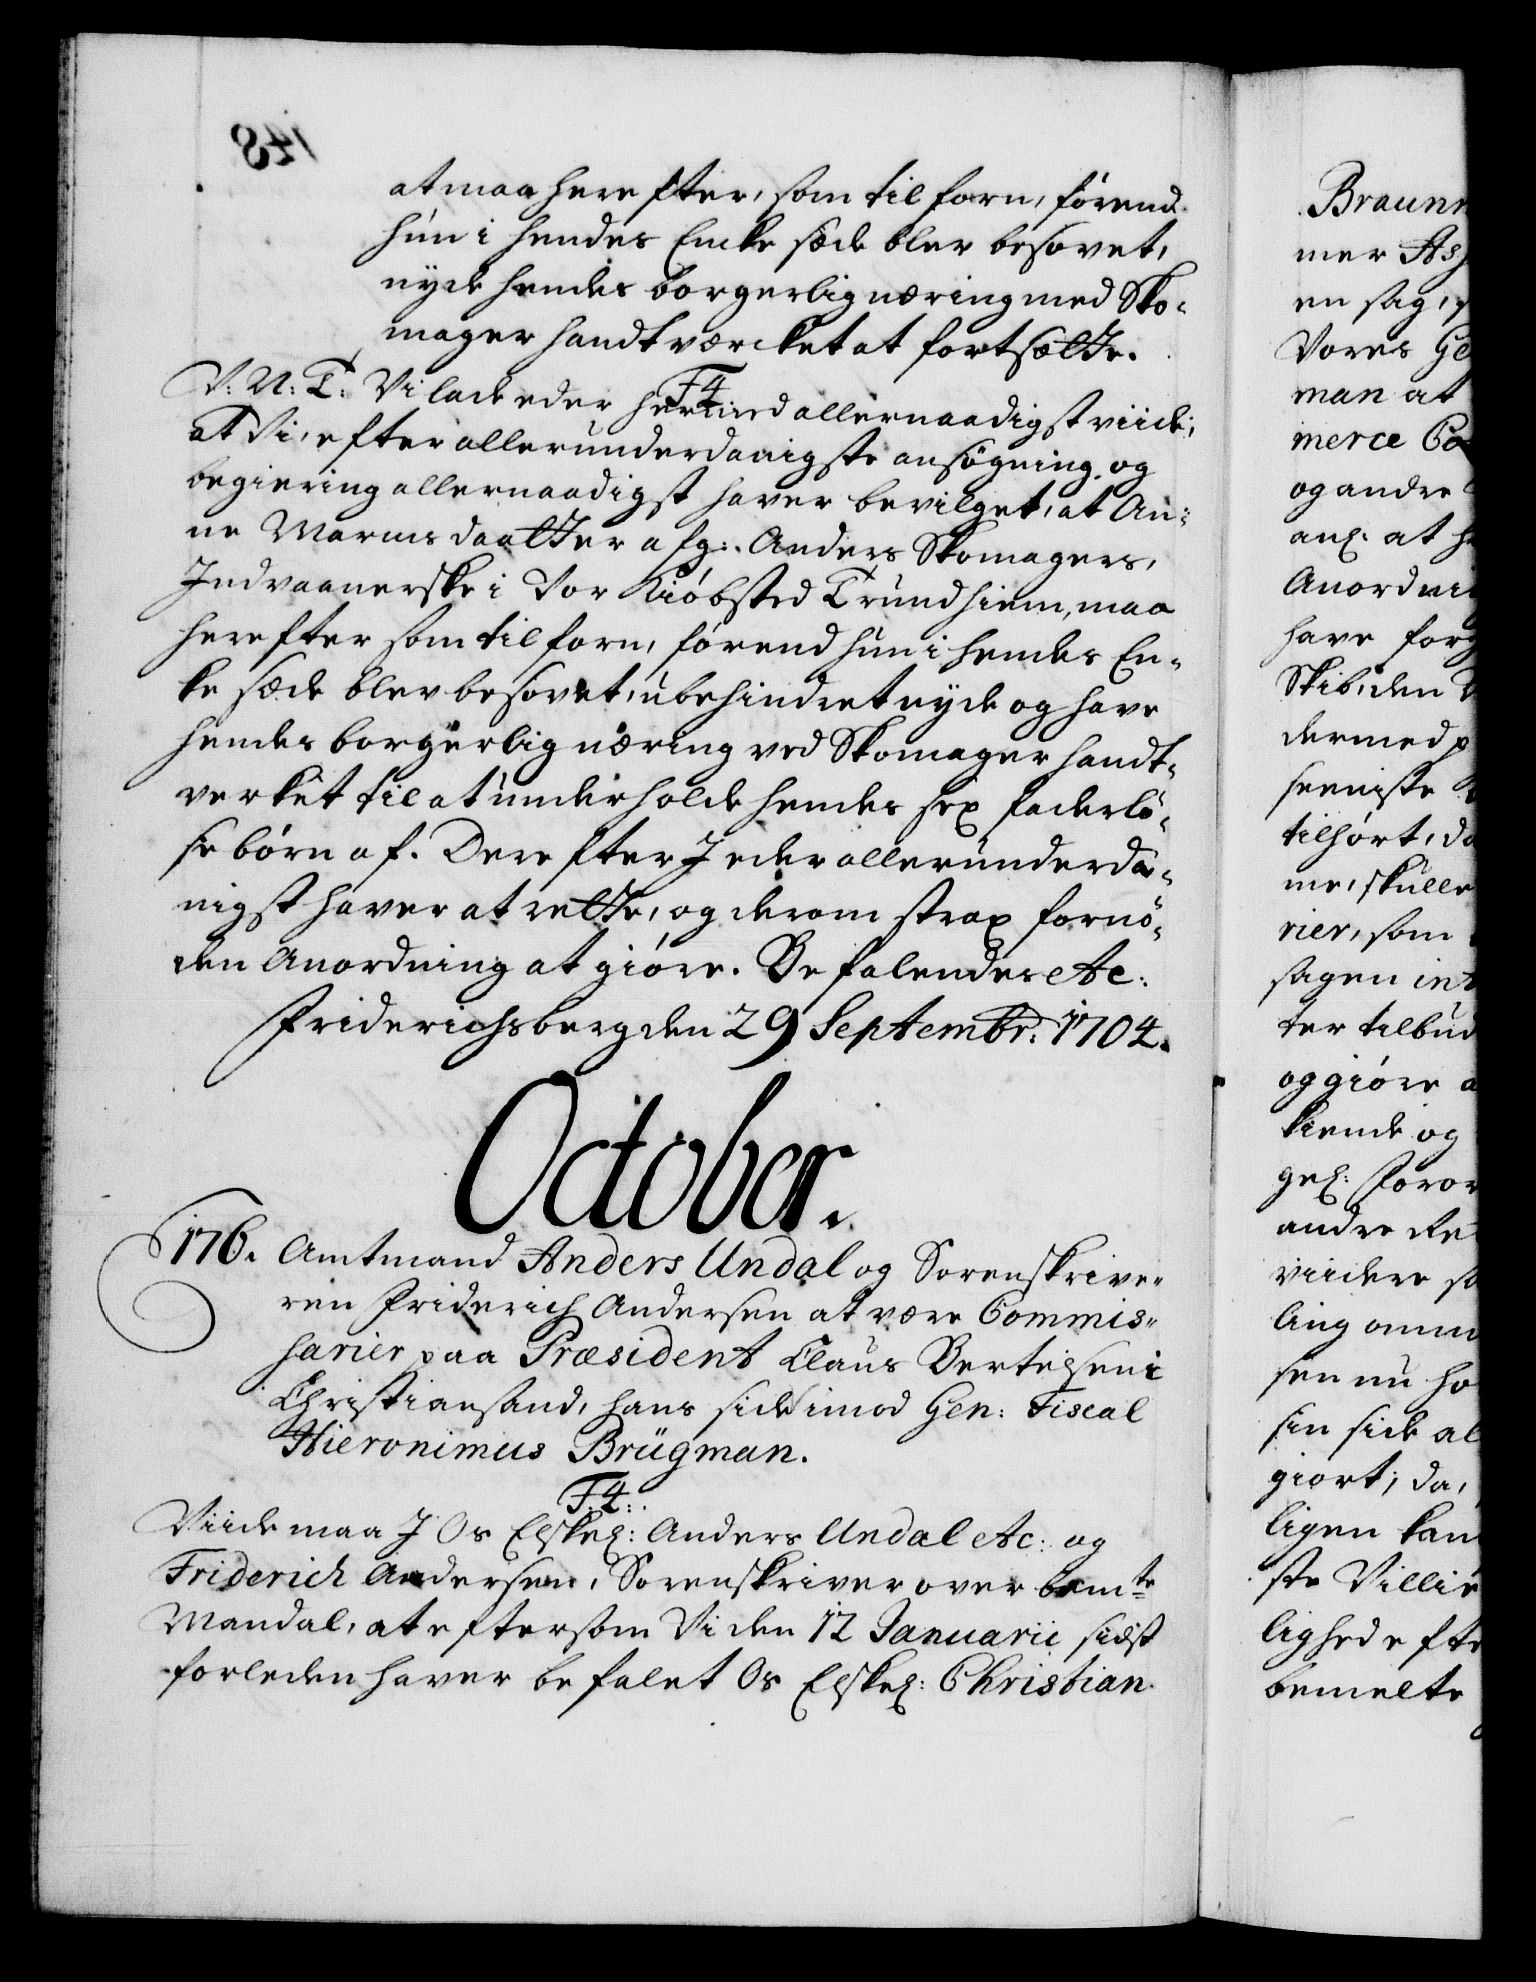 at maa herefter, som tilforn, førend
hun i hendes Encke sæde blev besovet,
nyde hendes borgerlig næring med Sko-
mager handtværcket at fortsætte.
F4
V: U: T: Vi lade eder hermed allernaadigst viide,
at Vi, efter allerunderdanigste ansøgning og
begiering allernaadigst haver bevilget, at An-
ne Marms daatter afg: Anders Skomagers,
Indvaanerske i Vor Kiöbsted Trundhiem, maa
herefter som tilforn, førend hun i hendes En-
ke sæde blev besovet, ubehindret nyde og have
hendes borgerlig næring ved Skomager handt-
verket til at underholde hendes sex faderlö-
se børn af. Derefter I eder allerunderda-
nigst haver at rette, og derom strax fornö-
den Anordning at giöre. Befalendes etc:
Friderichsberg den 29 Septembr: 1704.
October.
176. Amtmand Anders Undal og Sorenskrive-
ren Friderich Andersen at være Commis-
harier paa Præsident Claus Bertelsen i
Christiansand, hans side imod Gen: Fiscal
Hieronimus Brügman.
F4:
Viide maa I Os Elskel: Anders Undal etc: og
Friderich Andersen, Sorenskriver over bemte
Mandal, at eftersom Vi den 12 Januarii sidst
forleden haver befalet Os Elskel: Christian
Braun
mer
en sag,
Vores
man at
merce
og andre
anl: at
Anordni
have
Skib, den
dermed
seeniste
tilhört,
me, skulle
rier, som
sagen
ter tilbud
og giöre
kiende og
gel:
andre
viidere
ling
sen nu
sin side
giort; da,
ligen kan
ste Villie
lighed efte
bemelte
148